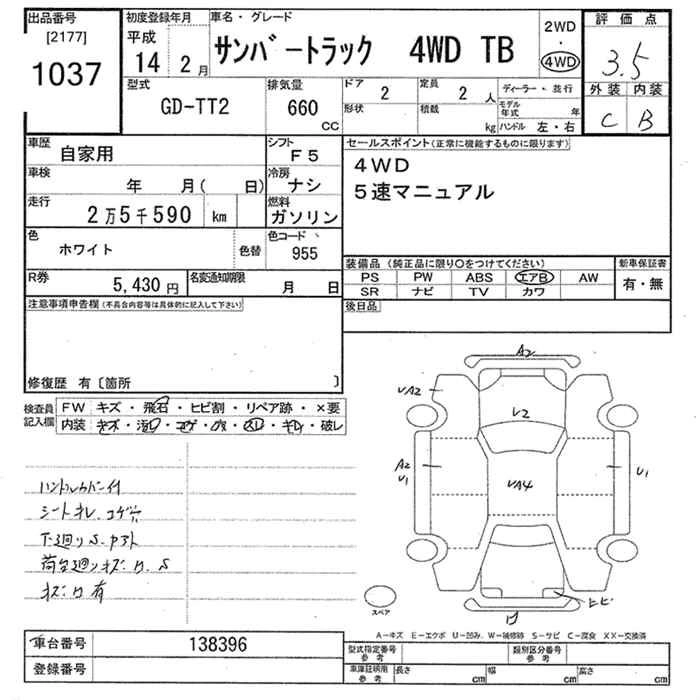 出品番号
[2177]
1037
初度登録年月
平成
14 2月
車名・グレード
サンバートラック 4WD TB
2WD
・
4WD
評価点
3.5
外装 内装
C B
型式
GD-TT2
排気量
660
CC
ドア
2
形状
定員
2人
積載
kg
ディーラー・並行
モデル年式 年
ハンドル 左・右
車歴
自家用
シフト
F5
車検
年 月( 日)
冷房
ナシ
走行
2万5千590 km
燃料
ガソリン
色
ホワイト
色替
色コード
955
R券
5,430円
名変通知期限
月 日
セールスポイント(正常に機能するものに限ります)
4WD
5速マニュアル
装備品 (純正品に限り○をつけてください)
PS PW ABS エアB AW
SR ナビ TV カワ
新車保証書
有・無
後日品
注意事項申告欄 (不具合内容等は具体的に記入して下さい)
修復歴 有〔箇所 〕
検査員記入欄
FW キズ・飛石・ヒビ割・リペア跡・×要
内装 キズ・汚レ・コゲ・ハガレ・スレ・キレ・破レ
ハンドルカバー付
シートキレ、コゲ穴
下廻りS、アスト
荷台廻りキズ、凹、S
キズ、凹有
A2
UA2
U2
A2
U1
UA4
U1
ヒビ
凹
スペア
A-キズ E-エクボ U-凹み W-補修跡 S-サビ C-腐食 XX-交換済
車台番号 138396
登録番号
型式指定番号
参考
類別区分番号
参考
車庫証明用
参考
長さ cm 幅 cm 高さ cm